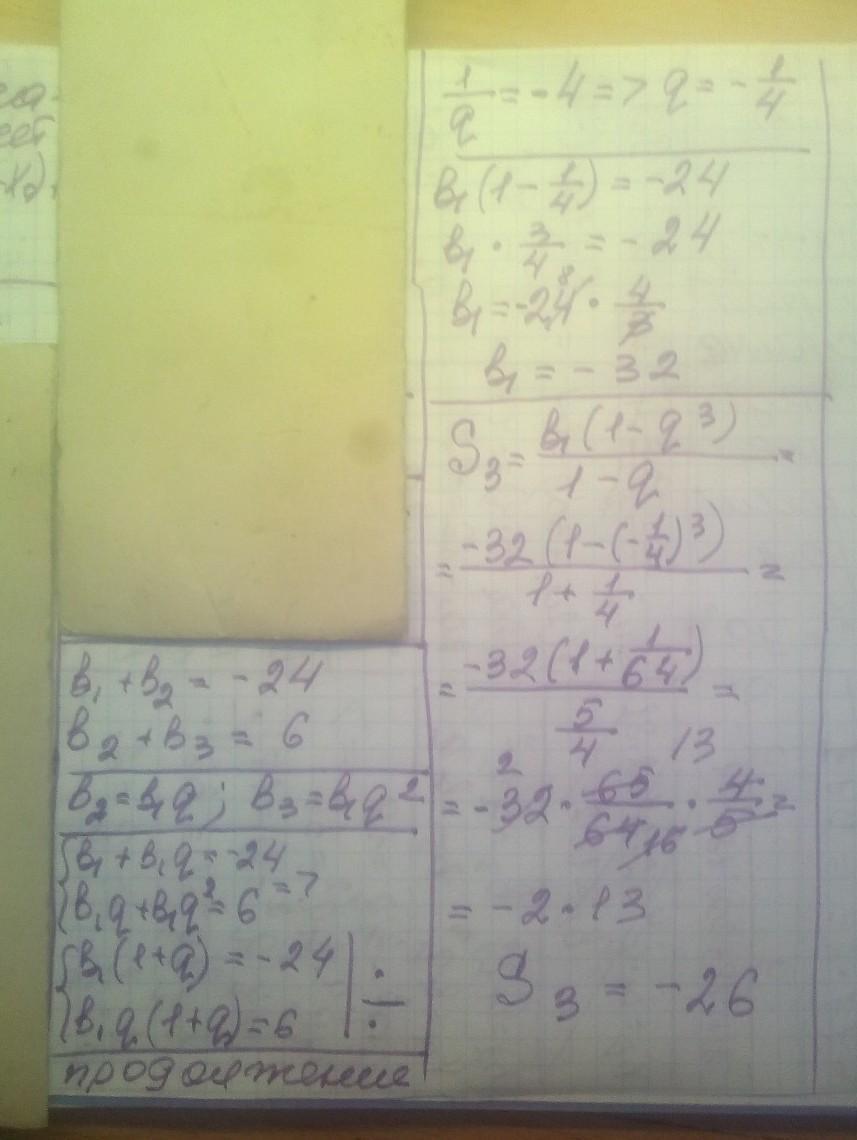 b₁ + b₂ = -24
b₂ + b₃ = 6
b₂ = b₁q ; b₃ = b₁q²
{b₁ + b₁q = -24
{b₁q + b₁q² = 6 =>
{b₁(1+q) = -24 | :
{b₁q(1+q) = 6
продолжение
1/q = -4 => q = -1/4
b₁(1 - 1/4) = -24
b₁ · 3/4 = -24
b₁ = -24 8 · 4/3
b₁ = -32
S₃ = b₁(1 - q³)/(1 - q) =
= -32(1 - (-1/4)³)/(1 + 1/4) =
= -32(1 + 1/64)/(5/4) =
= -32 2 · 65 13/64 16 · 4/5 =
= -2 · 13
S₃ = -26